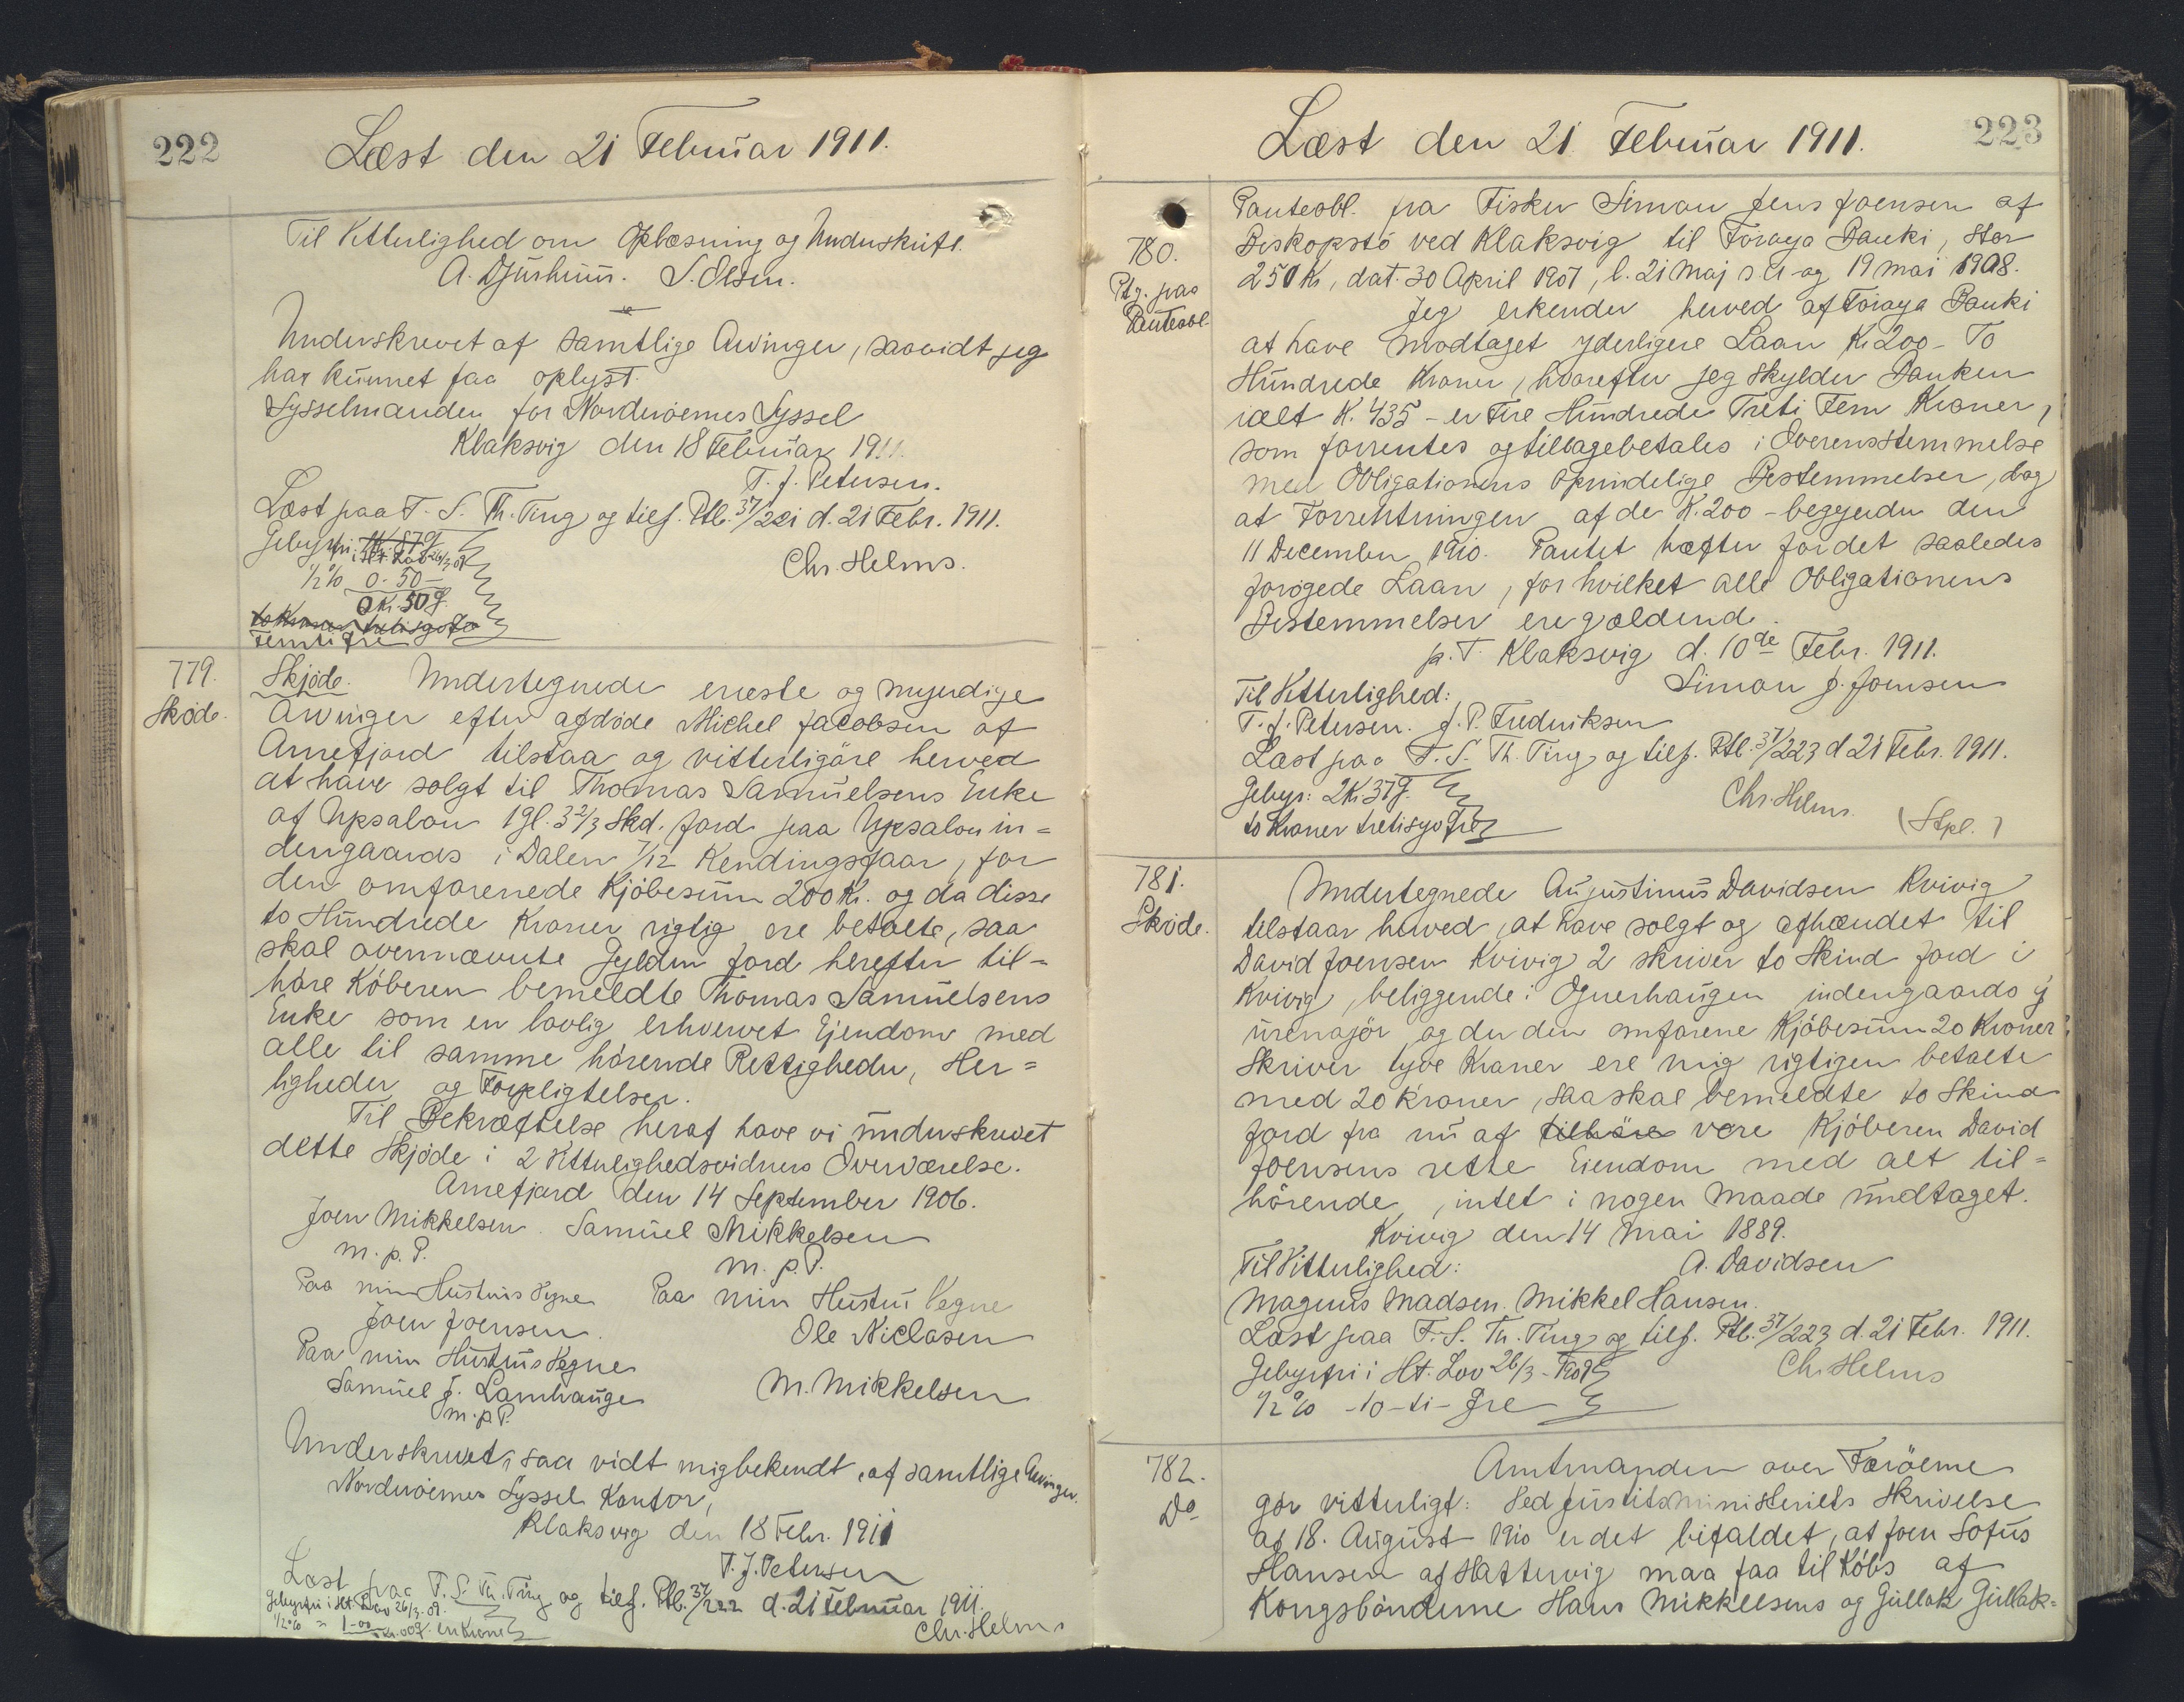 222
Læst den 21 Februar 1911.
Til Vitterlighed om Oplæsning og Underskrift.
A. Djurhuus. S. Olsen.
Underskrevet af samtlige Arvinger, saavidt jeg
har kunnet faa oplyst.
Sysselmanden for Norderøernes Syssel
Klaksvig den 18 Februar 1911.
T. J. Petersen.
Læst paa F. S. Th. Ting og tilf. Ptb. 37/221 d. 21 Febr. 1911.
Gebyrfri i Ht. Lov 26/3 09
Chr. Helms.
1/2 % 0-50-
0 Kr. 50 Ø.
Femti Øre
779.
Skøde.
Skjøde. Undertegnede eneste og myndige
Arvinger efter afdøde Michel Jacobsen af
Arnefjord tilstaa og vitterligöre herved
at have solgt til Thomas Samuelsens Enke
af Upsalon 1 gl. 3 2/3 Skd. Jord paa Upsalon in=
dengaards i Dalen 7/12 Kendingsfaar, for
den omforenede Kjöbesum 200 Kr. og da disse
to Hundrede Kroner rigtig ere betalte, saa
skal ovennævnte Gylden Jord herefter til=
høre Köberen bemeldte Thomas Samuelsens
Enke som en lovlig erhvervet Ejendom med
alle til samme hörende Rettigheder, Her=
ligheder og Forpligtelser.
Til Bekræftelse heraf have vi underskrevet
dette Skjøde i 2 Vitterlighedsvidners Overværelse.
Arnefjord den 14 September 1906.
Joen Mikkelsen. Samuel Mikkelsen
m. p. P. m. p. P.
Paa min Hustrus Vegne Paa min Hustru Vegne
Joen Joensen. Ole Niclasen
Paa min Hustrus Vegne
Samuel J. Lamhauge M. Mikkelsen
m. p. P.
Underskrevet, saa vidt mig bekendt, af samtlige Arvinger.
Norderøernes Syssel Kontor,
Klaksvig den 18 Febr. 1911
T. J. Petersen
Læst paa F. S. Th. Ting og tilf. Ptb. 37/222 d. 21 Februar 1911.
Gebyrfri i Ht. Lov 26/3 09.
1/2 % = 1-00 en Krone
Chr. Helms
223
Læst den 21 Februar 1911.
780.
Ptg. paa
Panteobl.
Panteobl. fra Fisker Simon Jens Joensen af
Biskopstö ved Klaksvig til Føroya Banki, stor
250 Kr, dat. 30 April 1907, l. 21 Maj s. A. og 19 mai 1908.
Jeg erkender herved af Føroya Banki
at have modtaget yderligere Laan Kr 200 - To
Hundrede Kroner, hvorefter jeg skylder Banken
ialt K. 435 - er Fire Hundrede Treti Fem Kroner,
som forrentes og tilbagebetales i Overensstemmelse
med Obligationens Oprindelige Bestemmelser, dog
at Forrentningen af de K. 200 - begynder den
11 December 1910. Pantet hæfter for det saaledes
forøgede Laan, for hvilket alle Obligationens
Bestemmelser ere gældende.
p. T. Klaksvig d. 10de Febr. 1911.
Simon J. Joensen
Til Vitterlighed:
T. J. Petersen. J. P. Fredriksen
Læst paa F. S. Th. Ting og tilf. Ptb. 37/223 d 21 Febr. 1911.
Gebyr: 2 Kr. 37 Ø.
to Kroner tretisyv Øre
Chr. Helms. (Stpl.)
781.
Skøde.
Undertegnede Augustinus Davidsen Kvivig
tilstaar herved, at have solgt og afhændet til
David Joensen Kvivig 2 skriver to Skind Jord i
Kvivig, beliggende i Ognerhaugen indengaards i
urenajör og der den omforene Kjöbesum 20 Kroner
Skriver tyve Kroner ere mig rigtigen betalte
med 20 Kroner, saa skal bemeldte to Skind
Jord fra nu af tilhöre være Kjöberen David
Joensens rette Eiendom med alt til=
hörende, intet i nogen Maade undtaget.
Kvivig den 14 Mai 1889.
Til Vitterlighed: A. Davidsen
Magnus Madsen. Mikkel Hansen.
Læst paa F. S. Th. Ting og tilf. Ptb. 37/223 d. 21 Febr. 1911.
Gebyrfri i Ht. Lov 26/3-1909
Chr. Helms
1/2 % -10-ti-Øre
782.
Do
Amtmanden over Færöerne
gör vitterligt: Ved Justitsministeriets Skrivelse
af 18. August 1910 er det bifaldet, at Joen Sofus
Hansen af Hattervig maa faa til Köbs af
Kongsbönderne Hans Mikkelsens og Gullak Gullak=